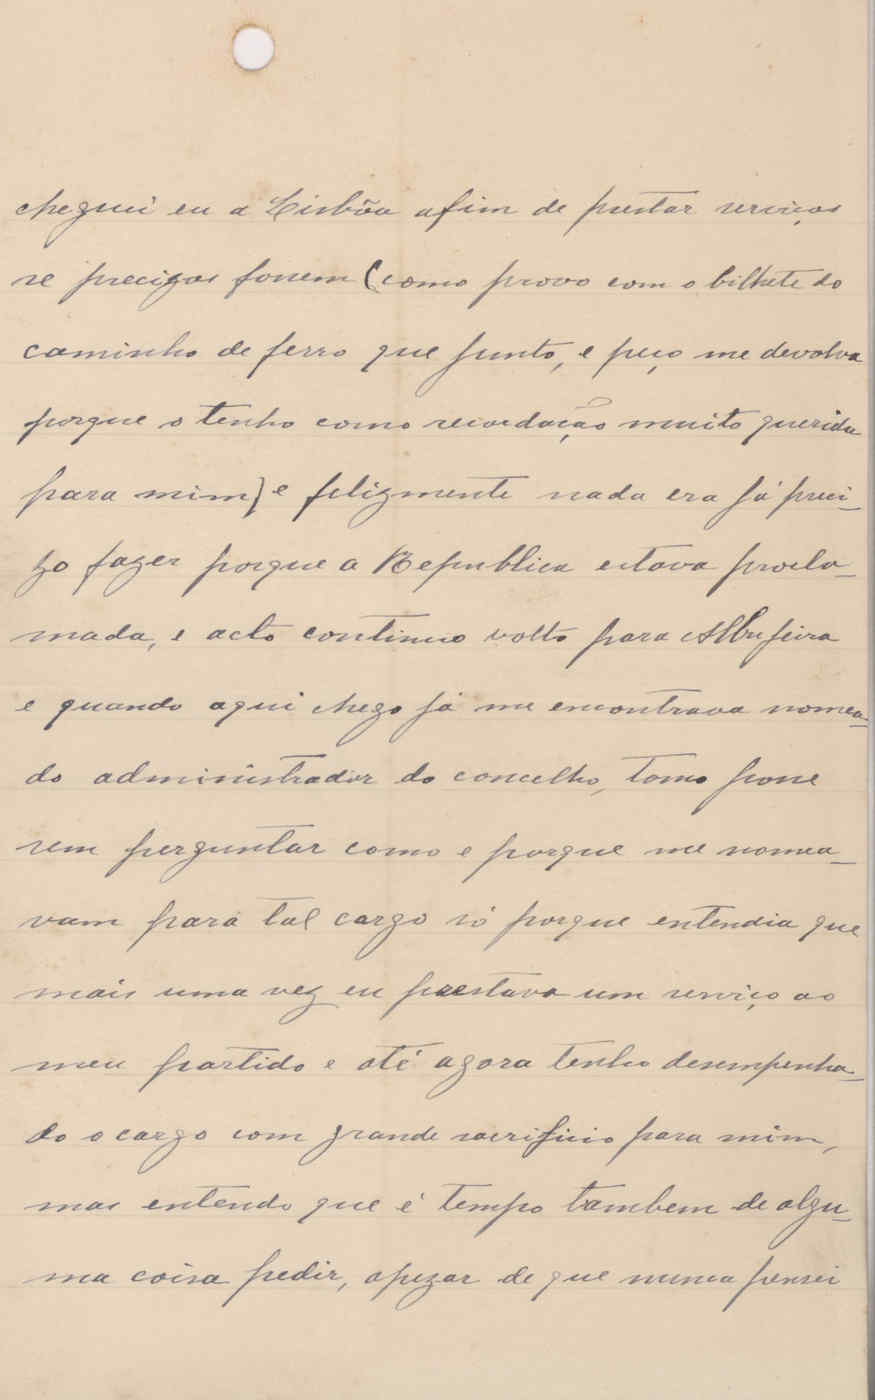 cheguei eu a Lisbôa afim de prestar serviços
se precizos fossem (como provo com o bilhete do
caminho de ferro que junto, e peço me devolva
porque o tenho como recordação muito querida
para mim) e felizmente nada era já preci-
zo fazer porque a Republica estava procla-
mada, e acto continuo volto para Albufeira
e quando aqui chego já me encontrava nomea-
do administrador do concelho, tomo posse
sem perguntar como e porque me nomea-
vam para tal cargo só porque entendia que
mais uma vez eu prestava um serviço ao
meu partido e até agora tenho desempenha-
do o cargo com grande sacrificio para mim,
mas entendo que é tempo tambem de algu-
ma coisa pedir, apezar de que nunca pensei